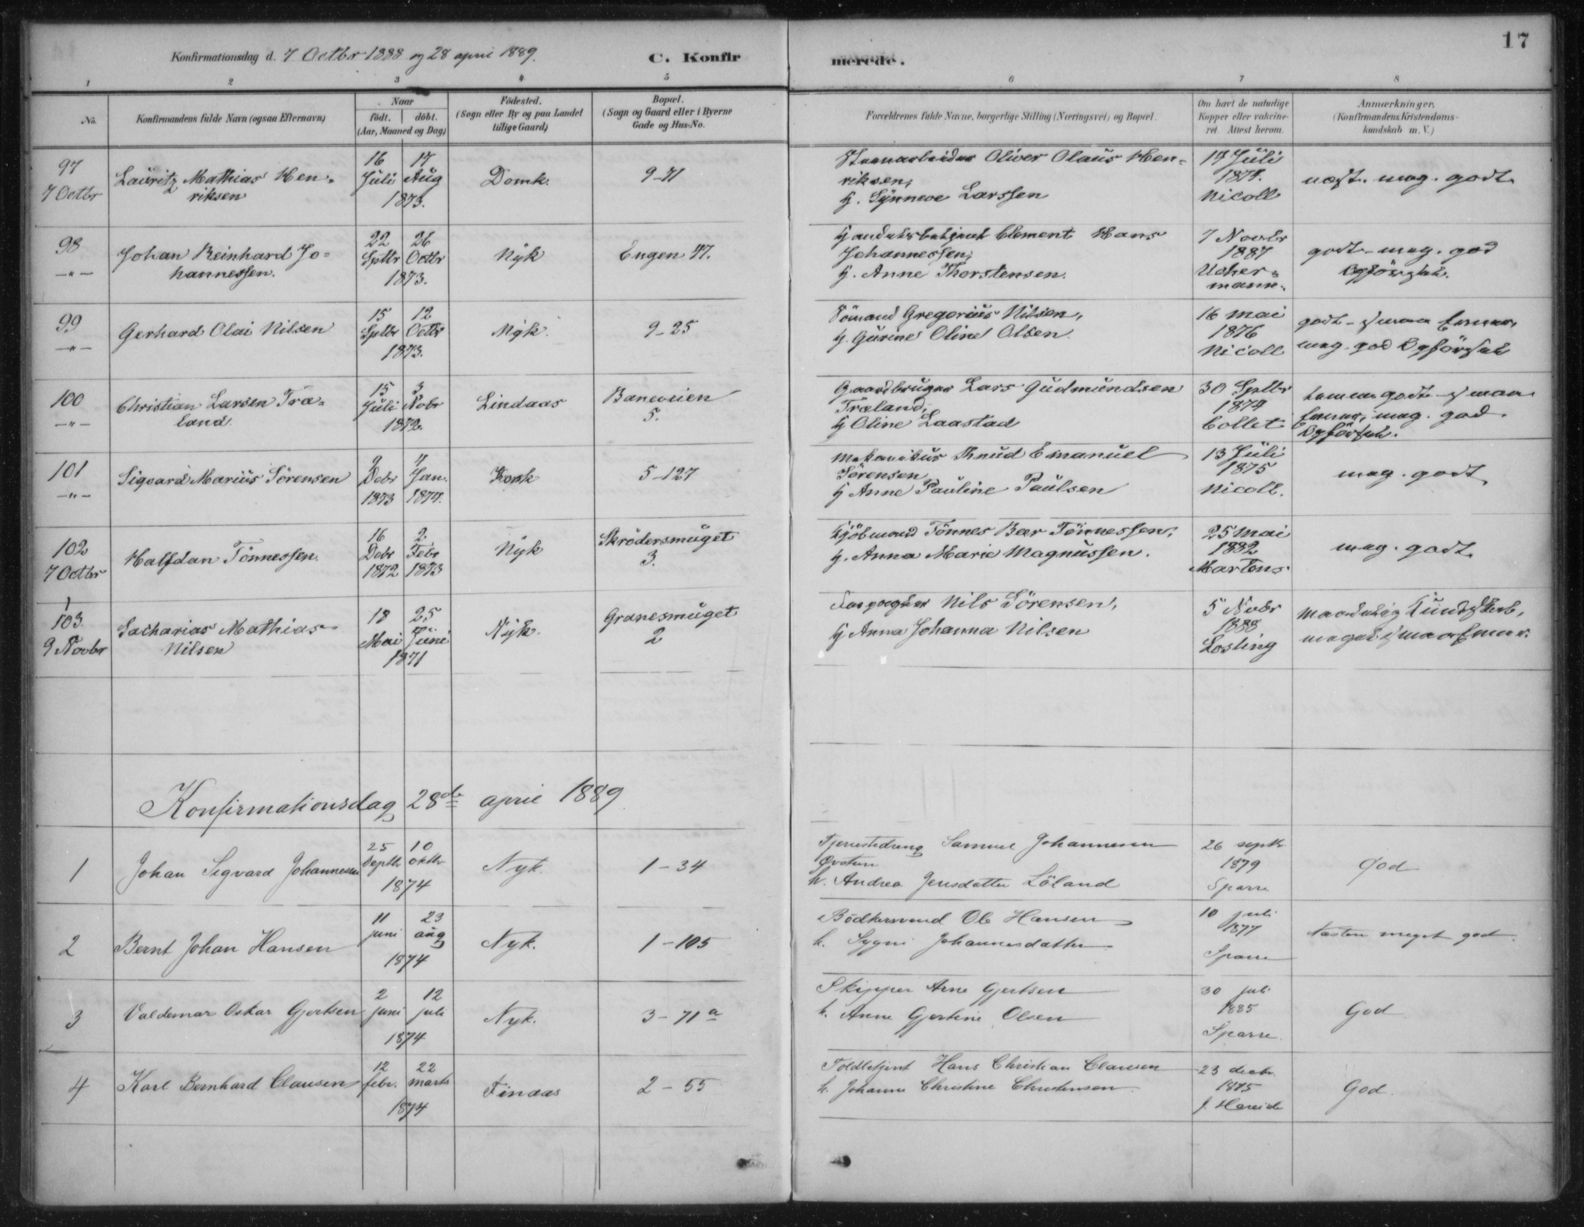 17
Konfirmationsdag d. 7 Octbr 1888 og 28 april 1889.
C. Konfirmerede.
1 2 3 4 5 6 7 8
No.
Konfirmandens fulde Navn (ogsaa Efternavn)
Naar
født. døbt.
(Aar, Maaned og Dag)
Fødested.
(Sogn eller By og paa Landet
tillige Gaard)
Bopæl.
(Sogn og Gaard eller i Byerne
Gade og Hus-No.
Forældrenes fulde Navne, borgerlige Stilling (Næringsvei) og Bopæl.
Om havt de naturlige
Kopper eller vaccine-
ret. Attest herom.
Anmærkninger.
(Konfirmandens Kristendoms-
kundskab m. V.)
97
7 Octbr
Lauritz Mathias Hen-
riksen
16 17
Juli Aug
1873.
Domk.
9-71
Oliver Olaus Hen-
riksen,
H. Synneve Larssen
17 Juli
1874.
Nicoll
næst. meg. godt
98
-"-
Johan Reinhard Jo-
hannessen.
22 26
Septbr Octbr
1873.
Nyk
Engen 47.
Clement Hans
Johannessen,
H. Anne Thorstensen.
7 Novbr
1887
Ucher-
mann.
godt - meg. god
Opførsel.
99
-"-
Gerhard Olai Nilsen
15 12
Septbr Octbr
1873.
Nyk
9-25
Sømand Gregorius Nilsen,
H. Gurine Oline Olsen.
16 mai
1876
Nicoll
godt -
meg. god Opførsel
100
-"-
Christian Larsen Træ-
land.
15 3
Juli Novbr
1872.
Lindaas
Baneveien
5.
Gaardbruger Lars Gudmundsen
Træland,
H Oline Laastad
30 Septbr
1874
Collet.
meg. god
Opførsel.
101
-"-
Sigvard Marius Sørensen
9 4
Debr Jan.
1873 1874.
Korsk
5-127
Mekanikus Knud Emanuel
Sørensen
H Anne Pauline Paulsen
13 Juli
1875
Nicoll.
meg. godt
102
7 Octbr
Halfdan Tönnessen.
16 2.
Debr Febr
1872 1873
Nyk
Skrødersmuget
3.
Kjöbmand Tönnes Bær Tönnessen,
H. Anna Marie Magnussen.
25 Mai
1882
Martens.
meg. godt
103
9 Novbr
Sacharias Mathias
Nilsen
18 25
Mai Juni
1871
Nyk.
Granesmuget
2
Nils Sörensen,
H Anna Johanna Nilsen
5 Novbr
1888
Losting
Konfirmationsdag 28de april 1889
1
Johan Sigvard Johannesen
25 10
septb. oktbr
1874
Nyk.
1-34
Tjenestedreng Samuel Johannesen
h. Andrea Jensdatter Löland
26 septb
1879
Sparre
God
2
Bernt Johan Hansen
11 23
juni aug
1874
Nyk.
1-105
Bödkersvend Ole Hansen
h. Sygni Johannesdatter
10 juli
1877
Sparre
Næsten meget god.
3
Valdemar Oskar Gjertsen
2 12
juni juli
1874
Nyk.
3-71a
Skipper Arne Gjertsen
h. Anne Gjertine Olsen
30 juli
1885
Sparre.
God
4
Karl Bernhard Clausen
12 22
febr. marts
1874
Finaas
2-55
Toldbetjent Hans Christian Clausen
h. Johanne Christine Christensen
23 decbr.
1875
J. Hareide
God.